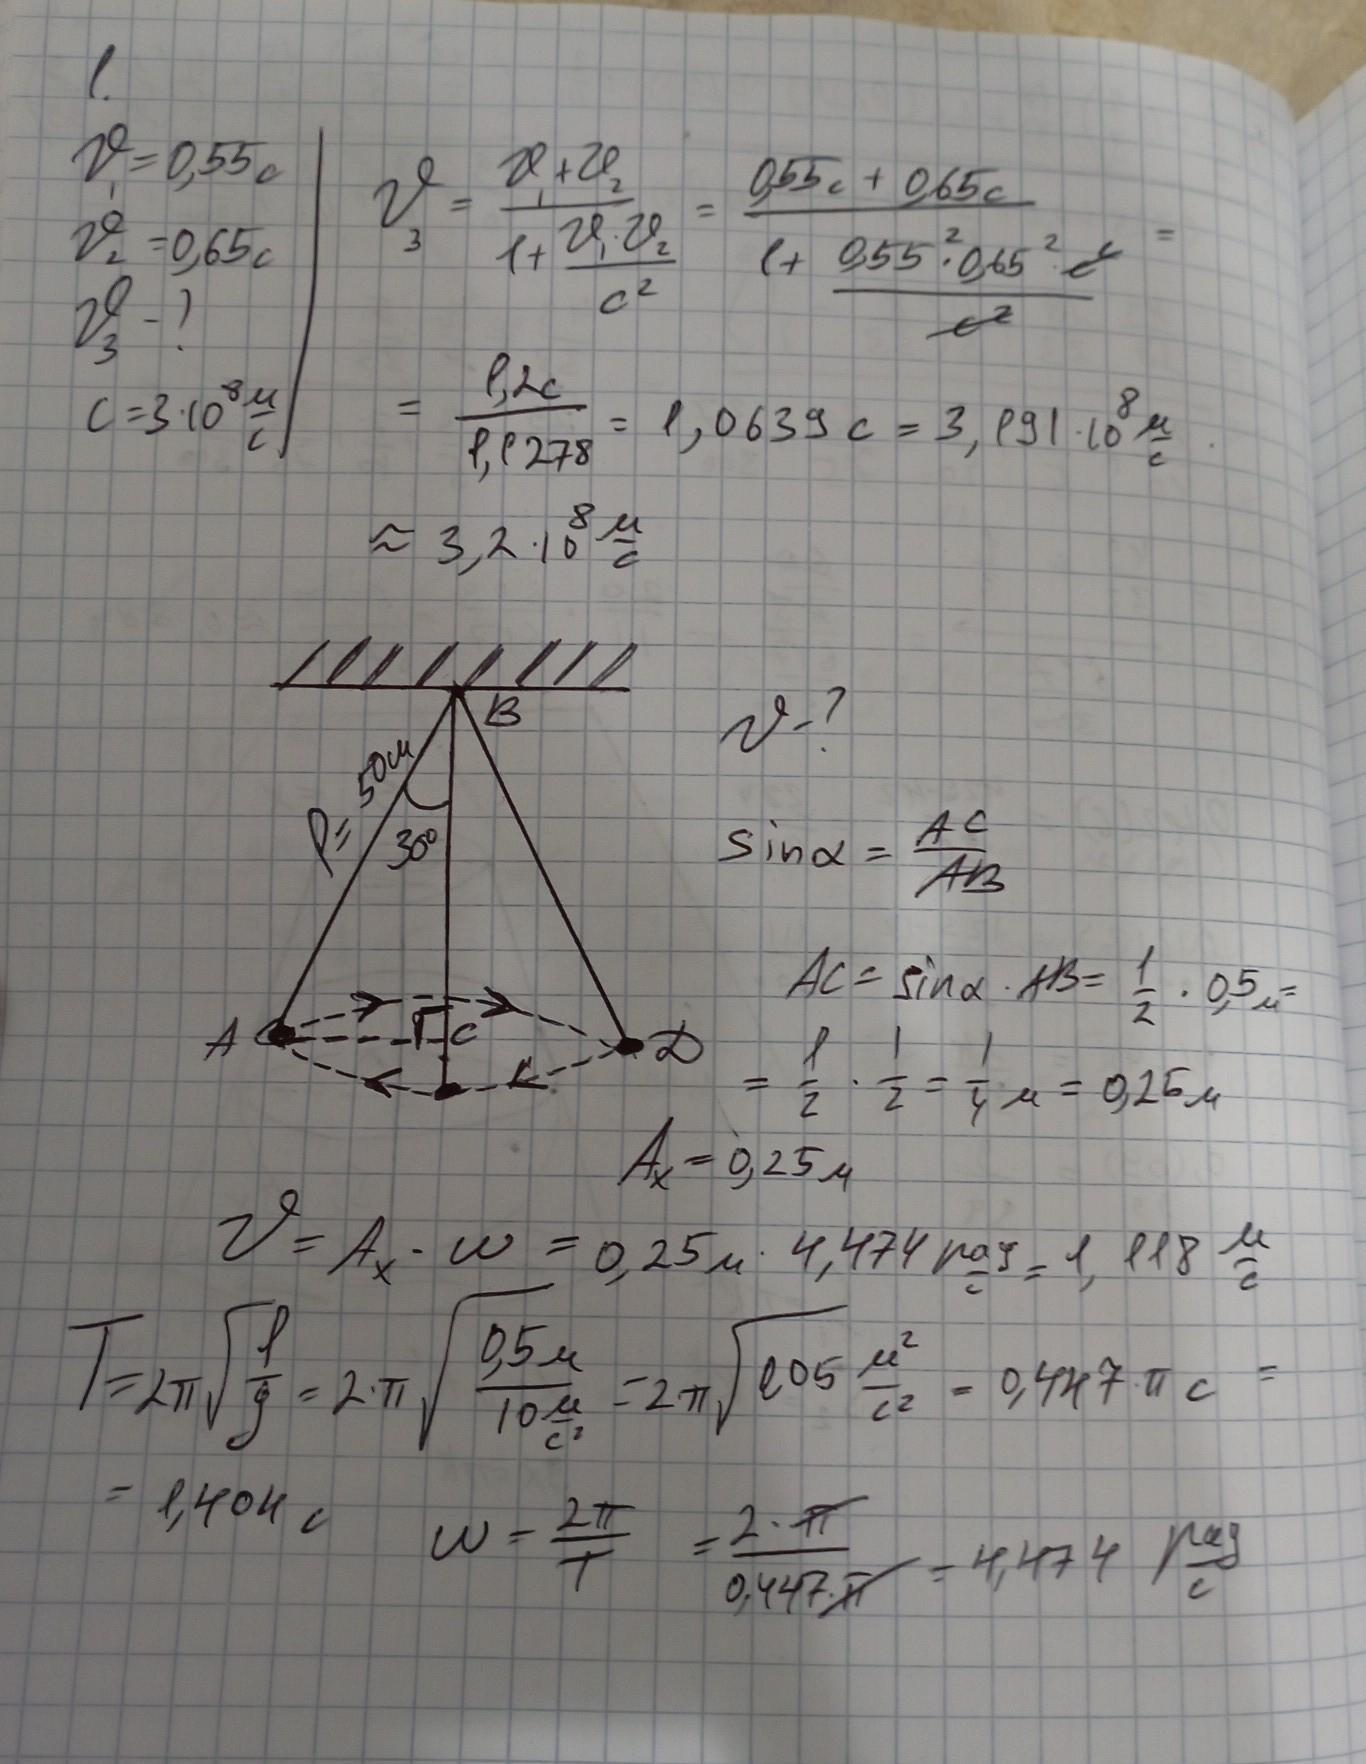 1.
𝜗₁ = 0,55c
𝜗₂ = 0,65c
𝜗₃ - ?
c = 3·10⁸ м/с
𝜗₃ = (𝜗₁ + 𝜗₂)/(1 + (𝜗₁·𝜗₂)/c²) = (0,55c + 0,65c)/(1 + (0,55²·0,65²·c²)/c²) =
= 1,2c/1,1278 = 1,0639 c = 3,191·10⁸ м/с
≈ 3,2·10⁸ м/с
B
l = 50см
30°
A
C
D
𝜗 - ?
sinα = AC/AB
AC = sinα · AB = 1/2 · 0,5м =
= 1/2 · 1/2 = 1/4 м = 0,25м
Aₓ = 0,25м
𝜗 = Aₓ · w = 0,25м · 4,474 рад/с = 1,118 м/с
T = 2π√(l/g) = 2·π√(0,5м/10 м/с²) = 2π√(0,05 м²/с²) = 0,447·π с =
= 1,404 с
w = 2π/T = 2·π/0,447·π = 4,474 рад/с